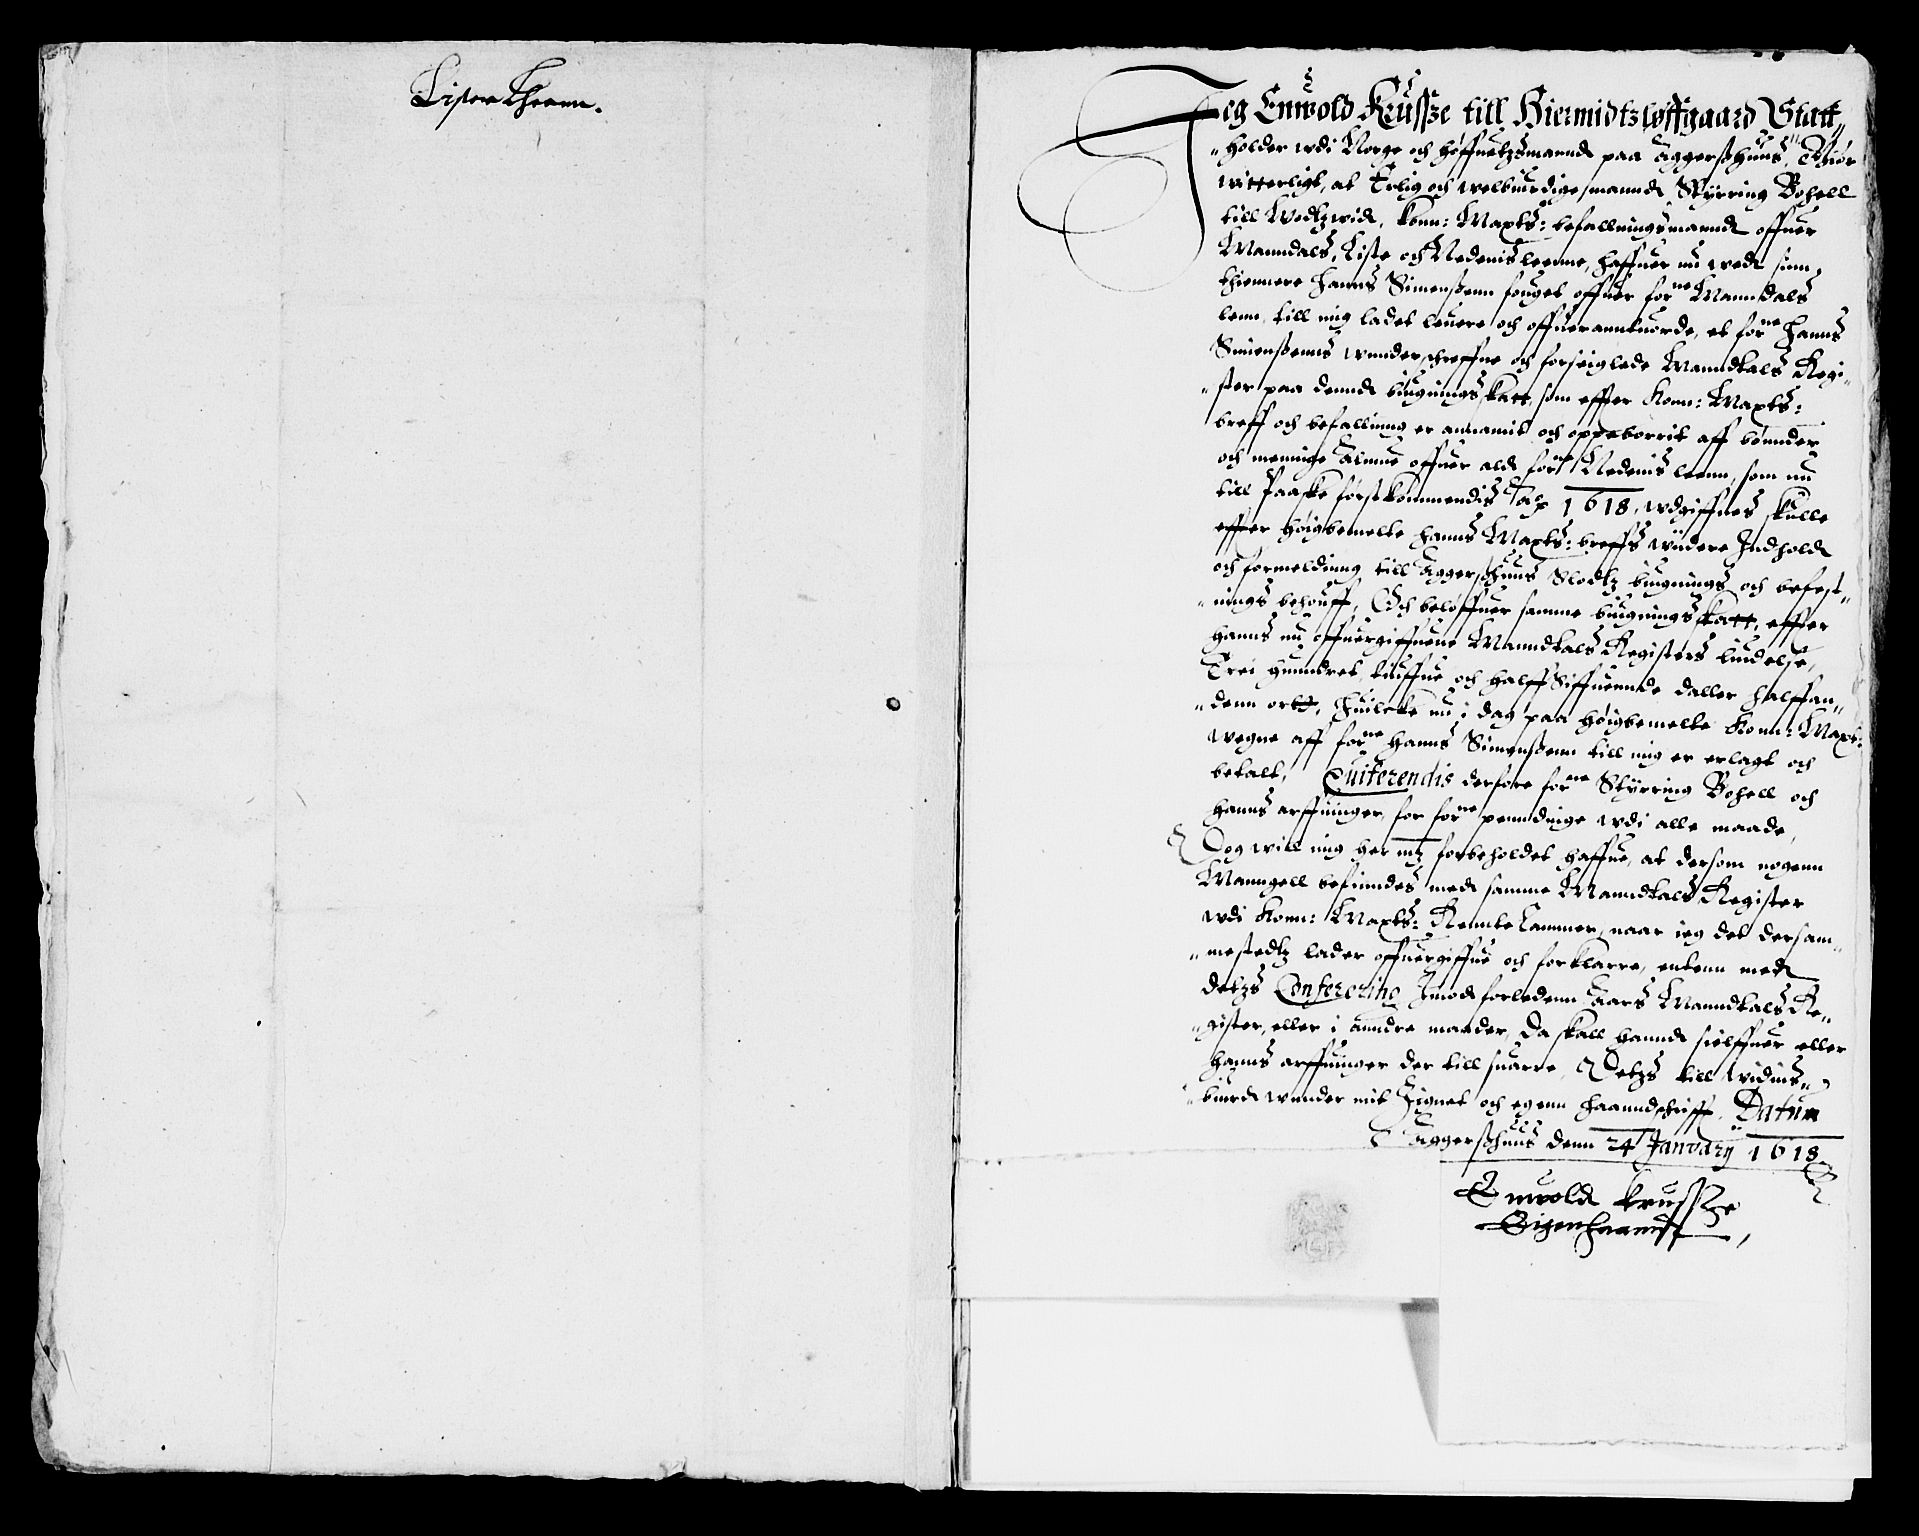 Lister Lhenn.
Jeg Enwold Krusse till Hiermidtzløffgaard Statt„
„holder wdi Norge och høffuetzmannd paa Aggerßhuus, Giør
witterligt, at Erlig och welbiurdige mannd Styrring Bohell
till Wodtzwid, Konn: Maytts: befallningsmannd offuer
Manndals, Liste och Nedenis leenne, haffuer nu wed sinn
thiennere Hanns Simensßenn fouget offuer forne Manndals
lenn, till mig ladet leuere och offuerantuorde, et forne Hanns
Simensßenns wnderschreffne och forseiglede Manndtals Regi„
„ster paa dennd biugnings skatt, som effter Konn: Maytts:
breff och befallning er annamit och oppeborrit aff bønnder
och menninge Almue offuer ald forne Nedenis leenn, som nu
till Paaske førstkommendis Aar 1618, wdgiffues skulle
effter høigbemelte Hanns Maytts: breffs widere Indhold
och formelding till Aggerßhuus Slodtz bugnings och befest„
„nings behouff, Och beløffuer samme biugnings skatt, effter
hanns nu offuergiffuene Manndtals Registers liudelse,
Trei hunndret, tiuffue och halff Siffuennde daller halffan„
„denn ort, Huilcke nu i dag paa høigbemelte Konn: Maytt:
wegne aff forne Hanns Simensßenn till mig er erlagt och
betalt, Quiterendis derfore forne Styrring Bohell och
hanns arffuinger, for forne penndinge wdi alle maade,
Dog will mig her mz forbeholdet haffue, at dersom nogenn
Manngell befinndes med samme Manndtals Register
wdi Konn: Maytts: Rennte Cammer, naar ieg det dersam„
„mestedtz lader offuergiffue och forklarre, entenn med
detzs Conferering Imod forledenn Aars Manndtals Re„
„gister, eller i anndre maader, Da skall hannd sielffuer eller
hanns arffuinger der till suarre, Detzs till widnis„
„biurd wnder mit Zignet och egenn Haanndschrifft. Datum
Aggerßhuus denn 24 Janvarij 1618
Enwold Krussze
Eigen haanndt